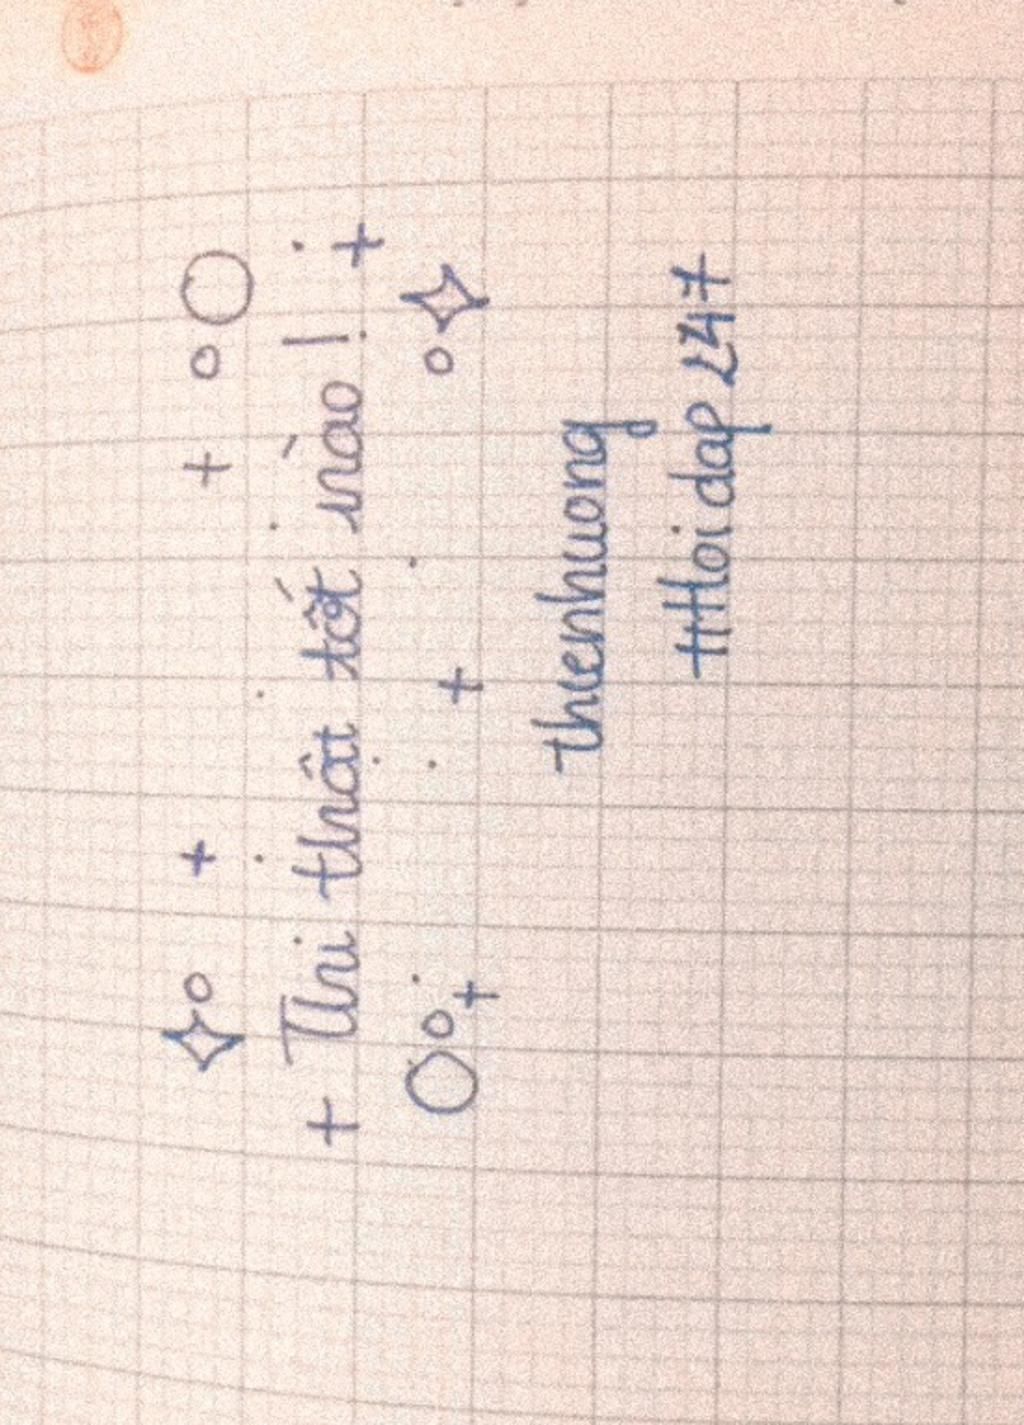 Thi thật tốt nào !
thuenhuong
#Hoidap247